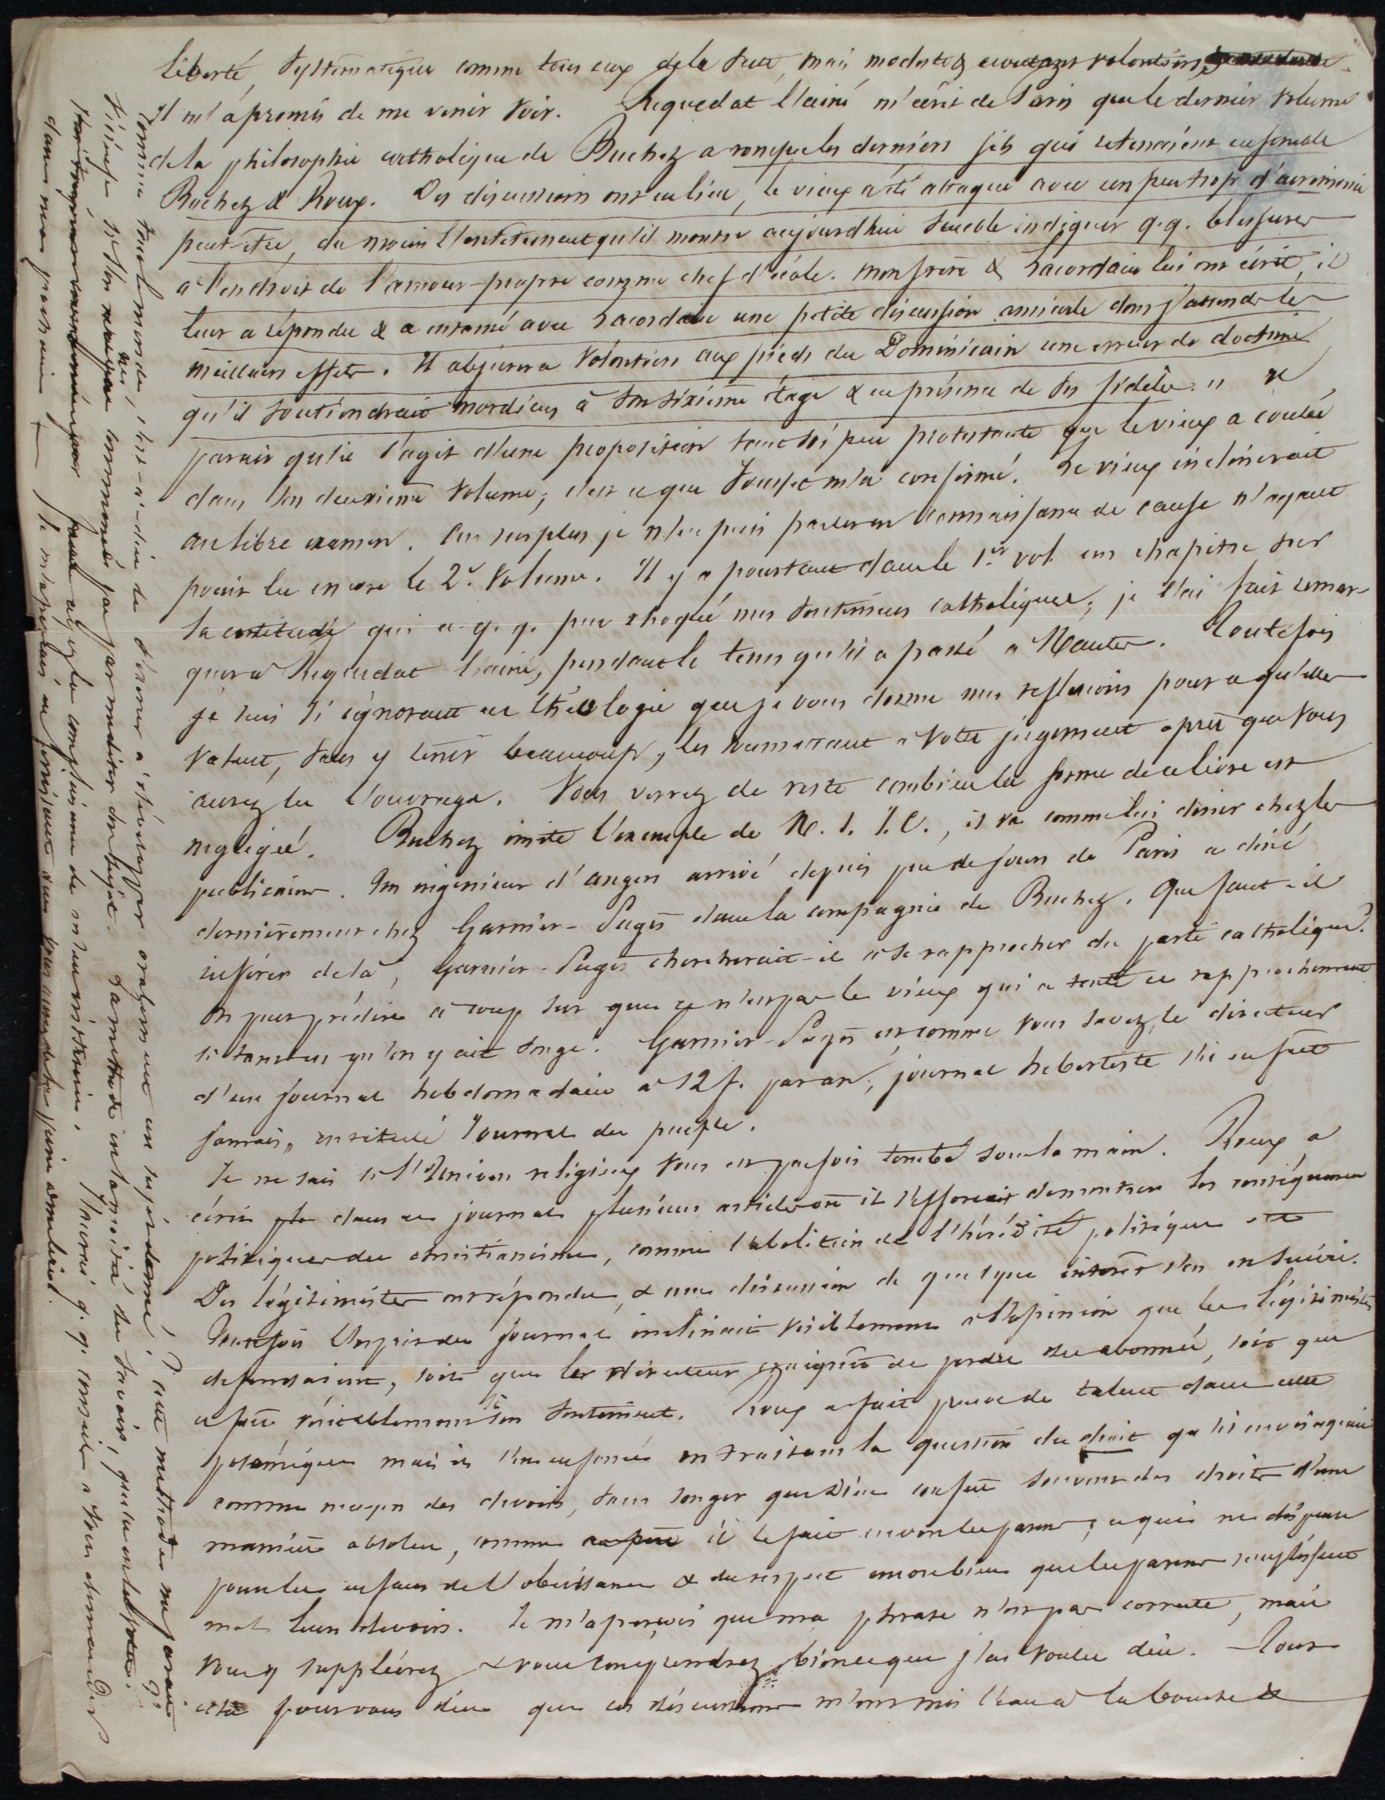 liberté, systématique comme tous ceux de la secte, mais modeste & écoutant volontiers,
Il m'a promis de me venir voir. Requedat l'ainé m'écrit de Paris que le dernier volume
de la philosophie catholique de Buchez a rompu les derniers fils qui retenaient ensemble
Buchez & Roux. Des discussions ont eu lieu, le vieux a été attaqué avec un peu trop d'acrimonie
peut-être, du moins l'entêtement qu'il montre aujourd'hui semble indiquer q.q. blessure
à l'endroit de l'amour-propre comme chef d'école. mon frère & Lacordaire lui ont écrit, il
leur a répondu & a entamé avec Lacordaire une petite discussion amicale dont j'attends les
meilleurs effets. Il abjurera volontiers aux pieds du Dominicain une erreur de doctrine
qu'il soutiendrait mordicus à son sixième étage & en présence de ses fidèles. "
parait qu'il s'agit d'une proposition tant soi peu protestante que le vieux a coulée
dans son deuxième volume; c'est ce que m'a confirmé. Le vieux inclinerait
au libre examen. Au surplus je n'en puis parler en connaissance de cause n'ayant
point lu encore le 2e. volume. Il y a pourtant dans le 1er vol. un chapitre sur
la certitude qui a q. q. peu choqué mes sentiments catholiques; je l'ai fait remar-
quer à Requedat l'ainé, pendant le tems qu'il a passé à Nantes. Toutefois
je suis si ignorant en théologie que je vous donne mes reflexions pour ce qu'elles
valent, sans y tenir beaucoup, les soumettant à votre jugement après que vous
aurez lu l'ouvrage. Vous verrez de reste combien la forme de ce livre est
negligée. Buchez imite l'exemple de N. S. J. C., il va comme lui diner chez les
publicains. Un ingénieur d'angers arrivé depuis peu de jours de Paris a diné
dernièrement chez Garnier-Pagès dans la compagnie de Buchez. Que faut-il
inférer de là, Garnier-Pagès chercherait-il à se rapprocher du parti catholique?
On peut prédire à coup sur que ce n'est pas le vieux qui a tenté ce rapprochement
si tant est qu'on y ait songé. Garnier-Pagès est comme vous savez, le directeur
d'un journal hebdomadaire à 12 f. par an, journal hebertiste s'il en fut
jamais, intitulé Journal du peuple.
Je ne sais si l'Univers religieux vous est parfois tombé sous la main. Roux a
écrit dans ce journal plusieurs articles où il s'efforçait demontrer les conséquences
politiques du christianisme, comme l'abolition de l'hérédité politique
Des légitimistes ont répondu, & une discussion de quelque intérêt s'en est suivie.
Toutefois l'esprit du journal inclinait visiblement à l'opinion que les légitimistes
defendaient, soit que les directeurs craignent de perdre des abonnés, soit que
ce fut véritablement son sentiment. Roux a fait preuve de talent dans cette
polémique mais il s'est enfoncé en traitant la question du droit qu'il envisageait
comme moyen des devoirs, sans songer que Dieu confère souvent des droits d'une
manière absolue, comme il le fait envers les parens, ce qui ne dispense
point les enfans de l'obeissance & du respect encore bien que les parens remplissent
mal leurs devoirs. Je m'aperçois que ma phrase n'est pas correcte, mais
vous y suppléerez & vous comprendrez bien ce que j'ai voulu dire. Tout
cela pour vous dire que ces discussions m'ont mis l'eau à la bouche &
comme tout le monde, c'est-à-dire de s'exercer à développer oralement un sujet donné,